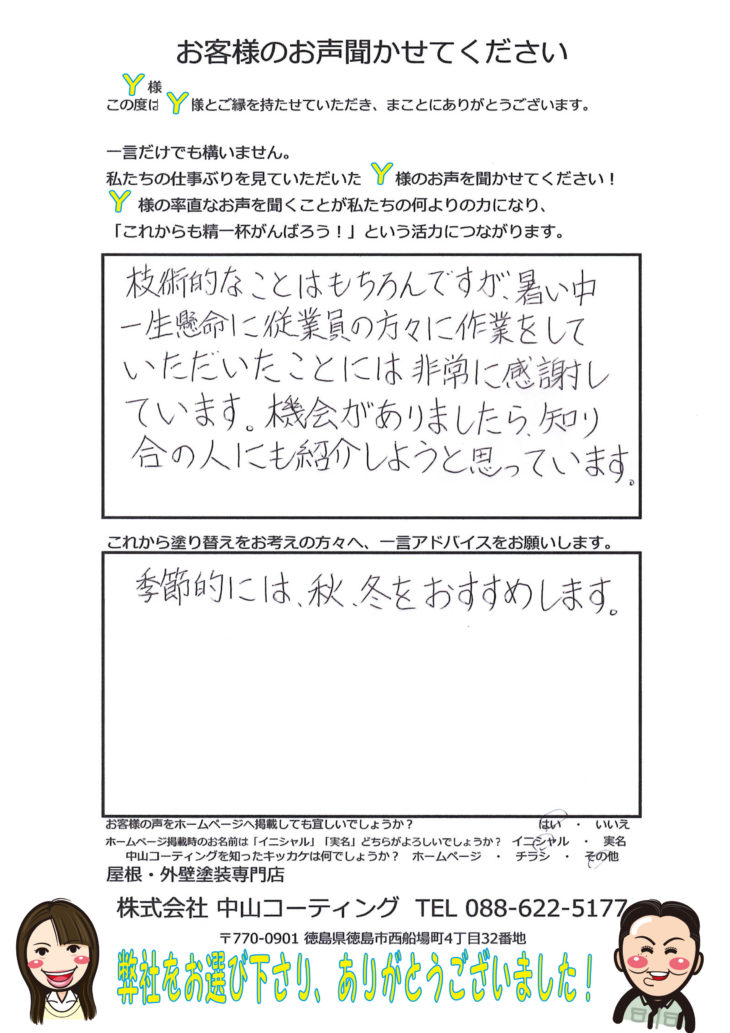 お客様のお声聞かせてください
Y様
この度は Y 様とご縁を持たせていただき、まことにありがとうございます。
一言だけでも構いません。
私たちの仕事ぶりを見ていただいた Y 様のお声を聞かせてください！
Y 様の率直なお声を聞くことが私たちの何よりの力になり、
「これからも精一杯がんばろう！」という活力につながります。
技術的なことはもちろんですが、暑い中
一生懸命に従業員の方々に作業をして
いただいたことには非常に感謝し
ています。機会がありましたら、知り
合の人にも紹介しようと思っています。
これから塗り替えをお考えの方々へ、一言アドバイスをお願いします。
季節的には、秋、冬をおすすめします。
お客様の声をホームページへ掲載しても宜しいでしょうか？ はい ・ いいえ
ホームページ掲載時のお名前は「イニシャル」「実名」どちらがよろしいでしょうか？ イニシャル ・ 実名
中山コーティングを知ったキッカケは何でしょうか？ ホームページ ・ チラシ ・ その他
屋根・外壁塗装専門店
株式会社 中山コーティング TEL 088-622-5177
〒770-0901 徳島県徳島市西船場町4丁目32番地
弊社をお選び下さり、ありがとうございました！